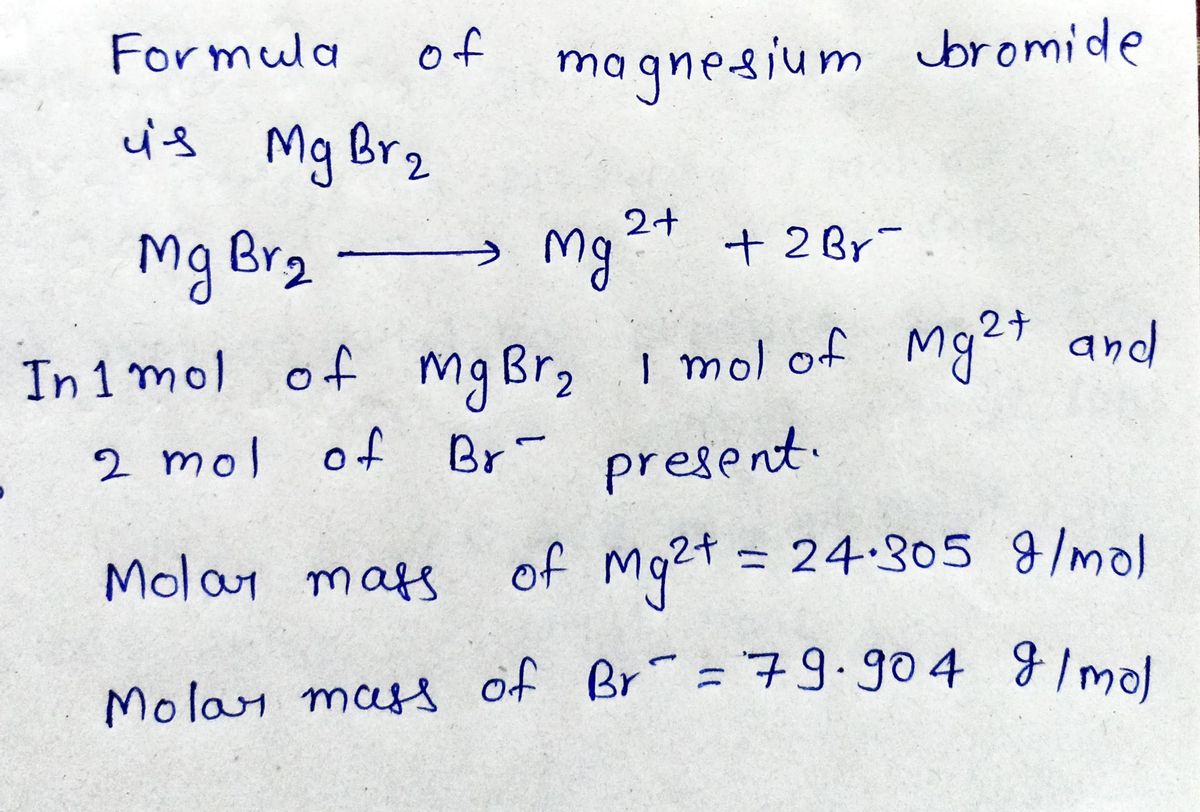 Formula of magnesium bromide
is MgBr₂
MgBr₂ ⟶ Mg²⁺ + 2Br⁻
In 1 mol of MgBr₂ 1 mol of Mg²⁺ and
2 mol of Br⁻ present.
Molar mass of Mg²⁺ = 24.305 g/mol
Molar mass of Br⁻ = 79.904 g/mol